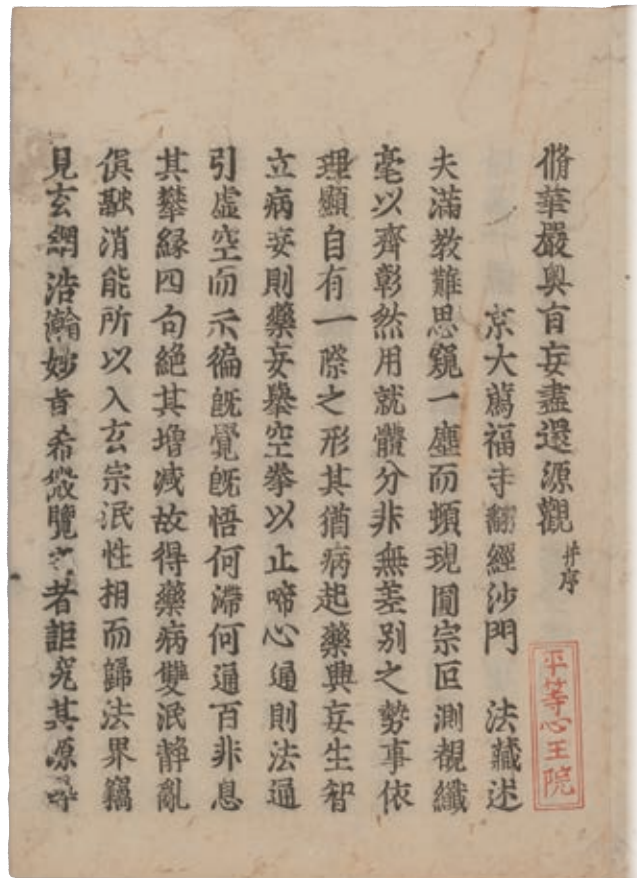 脩華嚴奥旨妄盡還源觀 并序
京大薦福寺翻經沙門 法藏述
夫滿教難思窺一塵而頓現圓宗叵測覩纖
毫以齊彰然用就體分非無差別之勢事依
理顯自有一際之形其猶病起藥興妄生智
立病妄則藥妄舉空拳以止啼心通則法通
引虛空而示徧旣覺旣悟何滯何通百非息
其攀縁四句絶其增減故得藥病雙泯靜亂
俱融消能所以入玄宗泯性相而歸法界竊
見玄綱浩瀚妙旨希微覽之者詎究其源尋
平等心王院